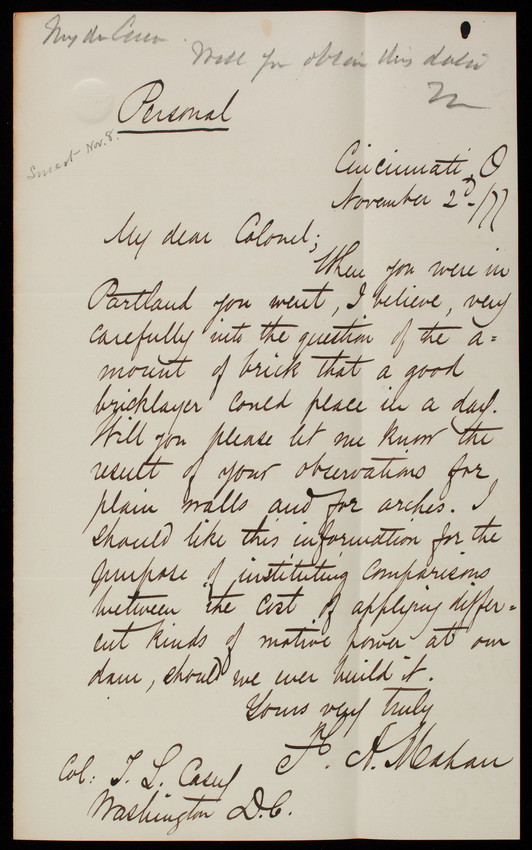 Will you obtain this data
Personal
Nov. 8.
Cincinnati, O
November 2d/77
My dear Colonel;
When you were in
Portland you went, I believe, very
carefully into the question of the a=
mount of brick that a good
bricklayer could place in a day.
Will you please let me know the
result of your observations for
plain walls and for arches. I
should like this information for the
purpose of instituting comparisons
between the cost of applying differ=
ent kinds of motive power at our
dam, should we ever build it.
Yours very truly
F. A. Mahan
Col: T. L. Casey
Washington D.C.